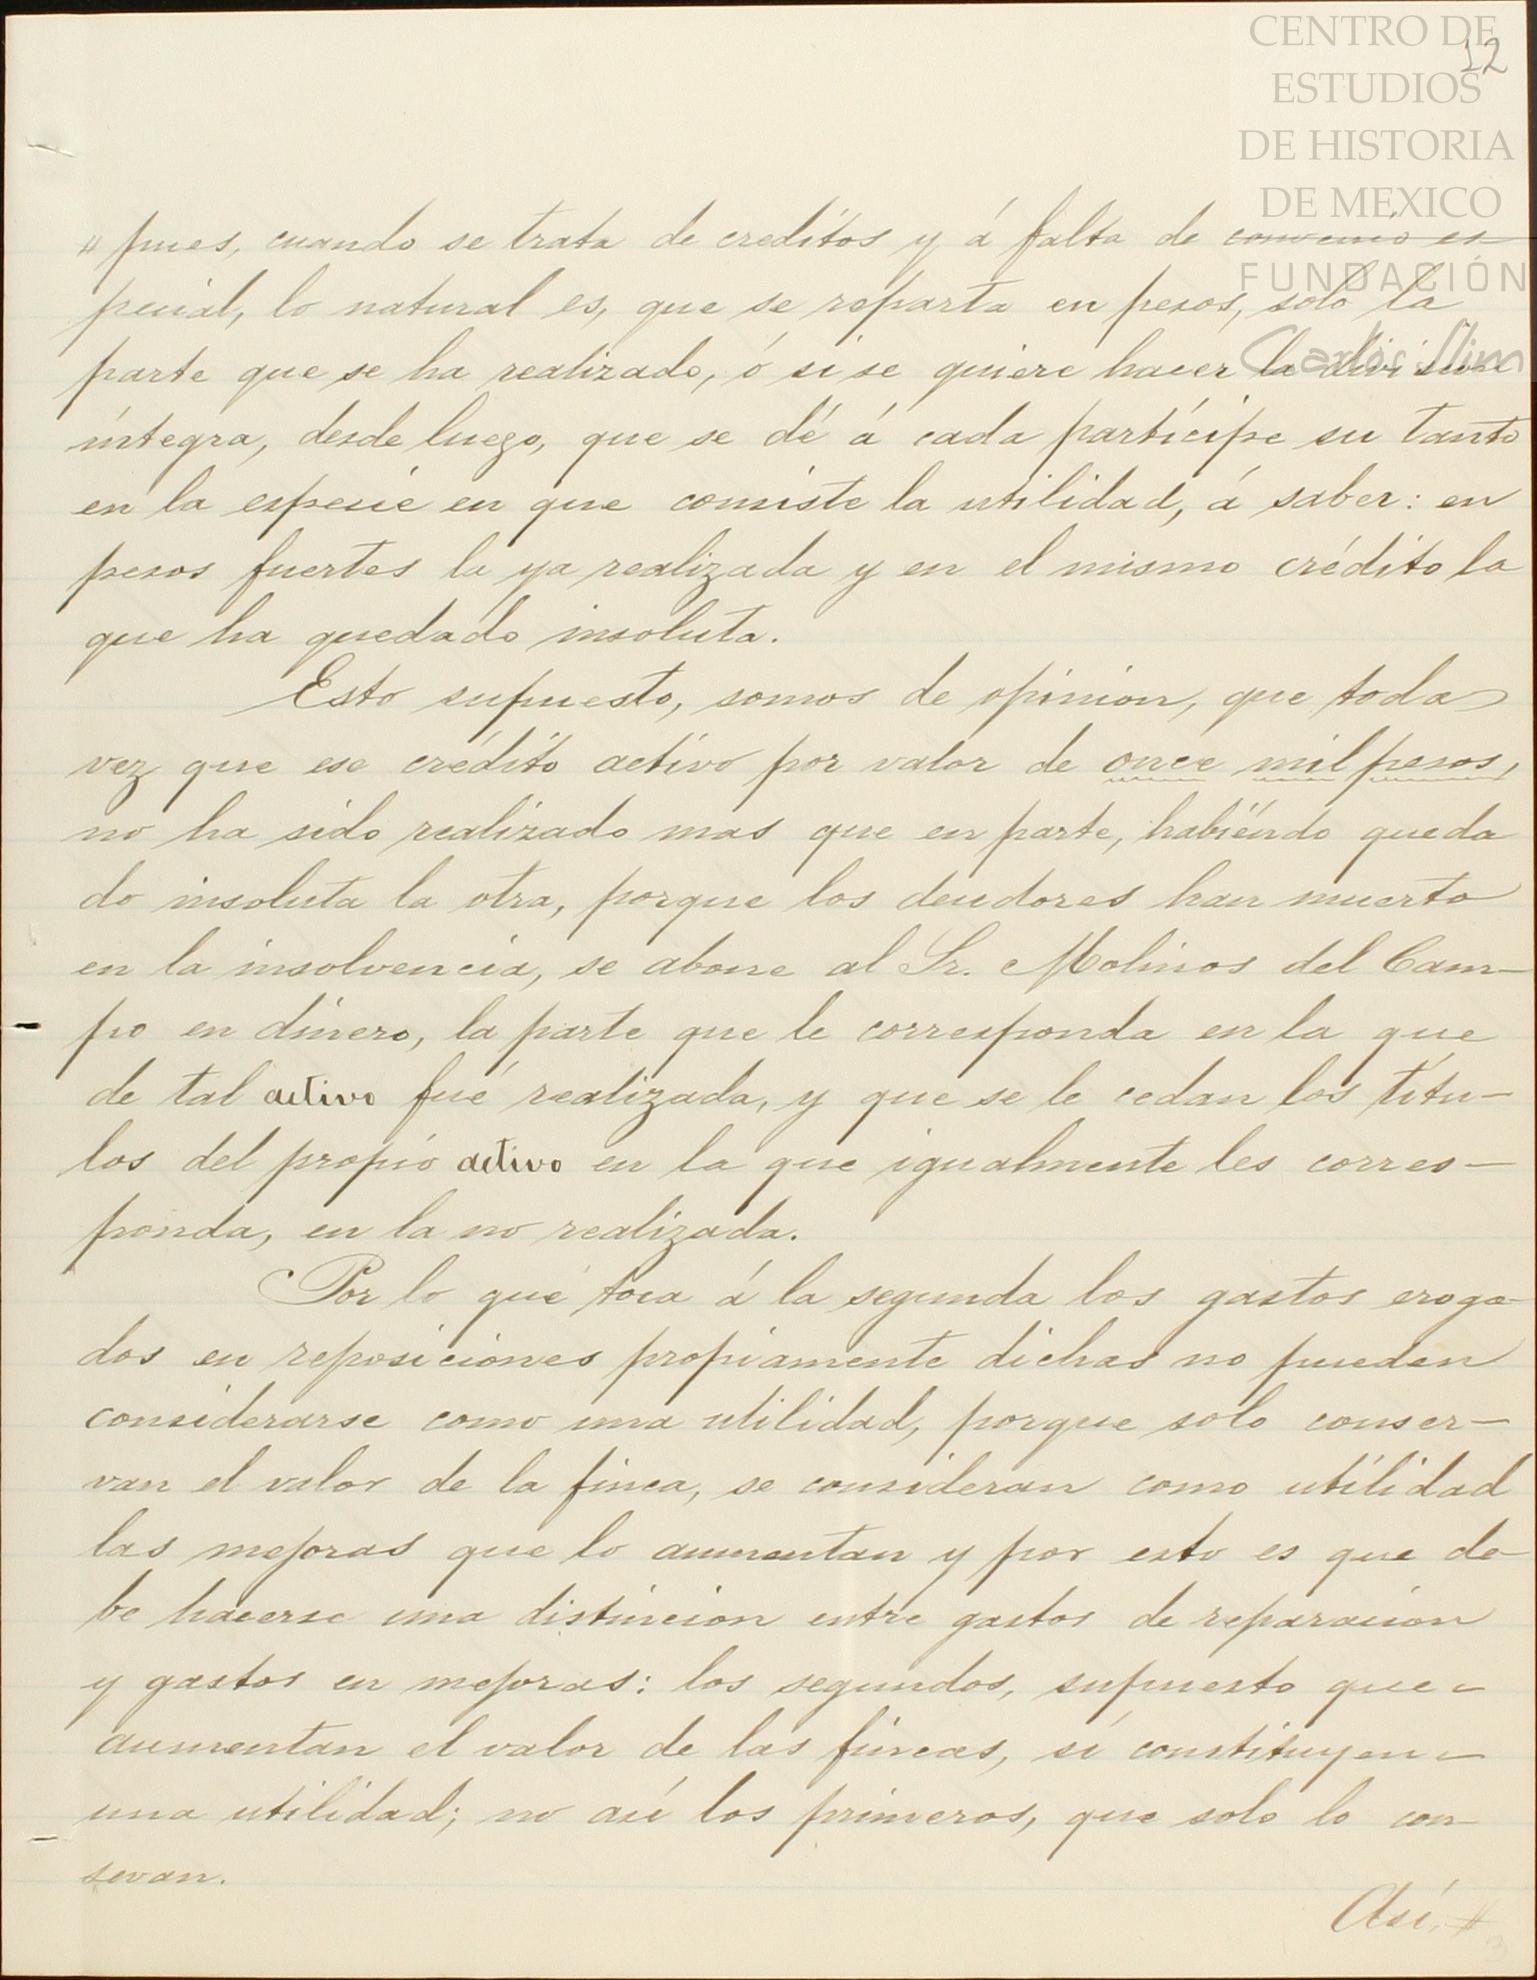 CENTRO DE
ESTUDIOS
DE HISTORIA
DE MEXICO
FUNDACIÓN
Carlos Slim
12
" pues, cuando se trata de creditos y á falta de convenio es-
pecial, lo natural es, que se reparta en pesos, solo la
parte que se ha realizado, ó si se quiere hacer la division
integra, desde luego, que se dé á cada participe su tanto
en la especie en que consiste la utilidad, á saber: en
pesos fuertes la ya realizada y en el mismo crédito la
que ha quedado insoluta.
Esto supuesto, somos de opinion, que toda
vez que ese crédito activo por valor de once mil pesos,
no ha sido realizado mas que en parte, habiéndo queda
do insoluta la otra, porque los deudores han muerto
en la insolvencia, se abone al Sr. Molinos del Cam-
po en dinero, la parte que le corresponda en la que
de tal activo fué realizada, y que se le cedan los títu-
los del propio activo en la que igualmente les corres-
ponda, en la no realizada.
Por lo que toca á la segunda los gastos eroga-
dos en reposiciones propiamente dichas no pueden
considerarse como una utilidad, porque solo conser-
van el valor de la finca, se consideran como utilidad
las mejoras que lo aumentan y por esto es que de-
be hacerse una distincion entre gastos de reparacion
y gastos en mejoras: los segundos, supuesto que -
aumentan el valor de las fincas, sí constituyen -
una utilidad; no asi los primeros, que solo lo con-
sevan.
Así, #
3